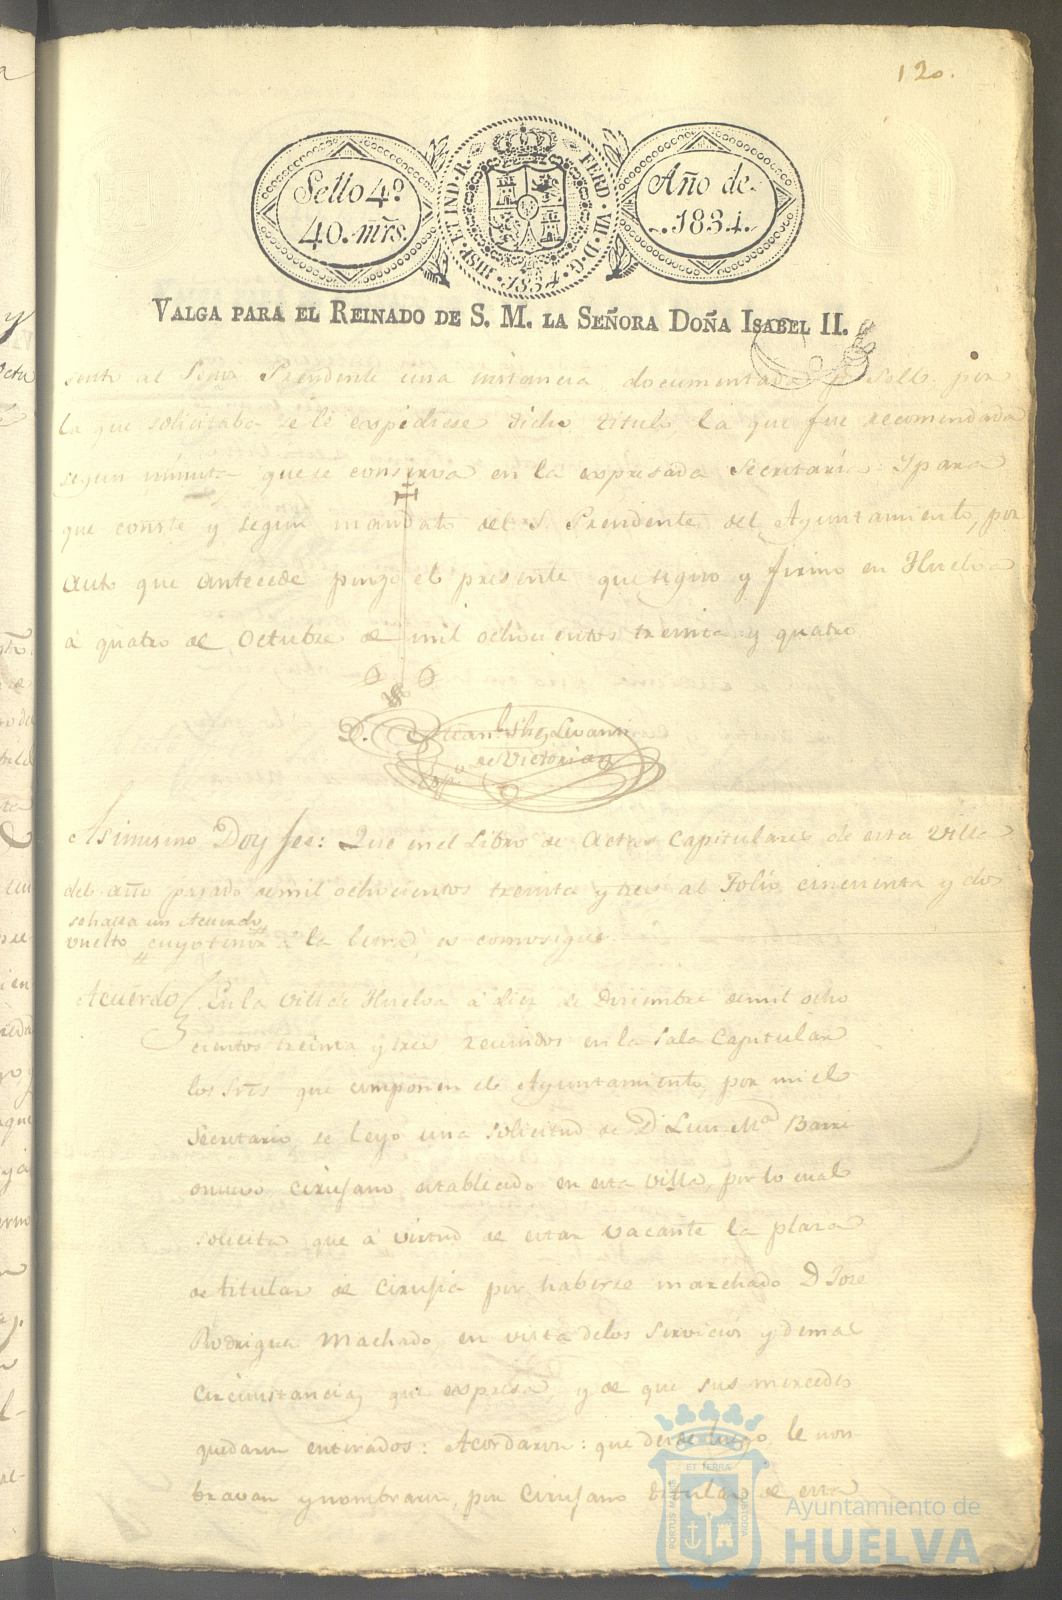 120.
Sello 4º
40. mrs.
HISP. ET IND. R. FERD. VII. D. G. 1834
Año de
1834.
VALGA PARA EL REINADO DE S. M. LA SEÑORA DOÑA ISABEL II.
al Señor Presidente una instancia documentada por
la que solicitaba se le expidiese dicho titulo la que fue recomendada
segun minuta que se conserva en la expresada Secretaría: Y para
que conste y segun mandato del S. Presidente del Ayuntamiento, por
auto que antecede pongo el presente que signo y firmo en Huelva
á quatro de Octubre de mil ochocientos treinta y quatro
D.
de Victorian
Asimismo Doy fee: Que en el Libro de Actas Capitulares de esta Villa
del año pasado de mil ochocientos treinta y tres al Folio cincuenta y dos
se halla un Acuerdo
vuelto cuyo tenor á la letra es como sigue
Acuerdo En la Villa de Huelva á diez de Diciembre de mil ocho
cientos treinta y tres reunidos en la Sala Capitular
los Srēs que componen el Ayuntamiento, por mi el
Secretario se leyo una solicitud de D Luis Mª Barri
onuevo, cirujano establecido en esta Villa, por lo cual
solicita que á virtud de estar vacante la plaza
de titular de Cirujia por haberse marchado D Jose
Rodriguez Machado, en vista de los servicios y demas
circunstancias que expresa, y de que sus mercedes
quedaron enterados: Acordaron: que desde luego le nom
bravan y nombraron, por Cirujano titular de esta
PORTUS MARIS ET TERRÆ CUSTODIA
Ayuntamiento de
HUELVA